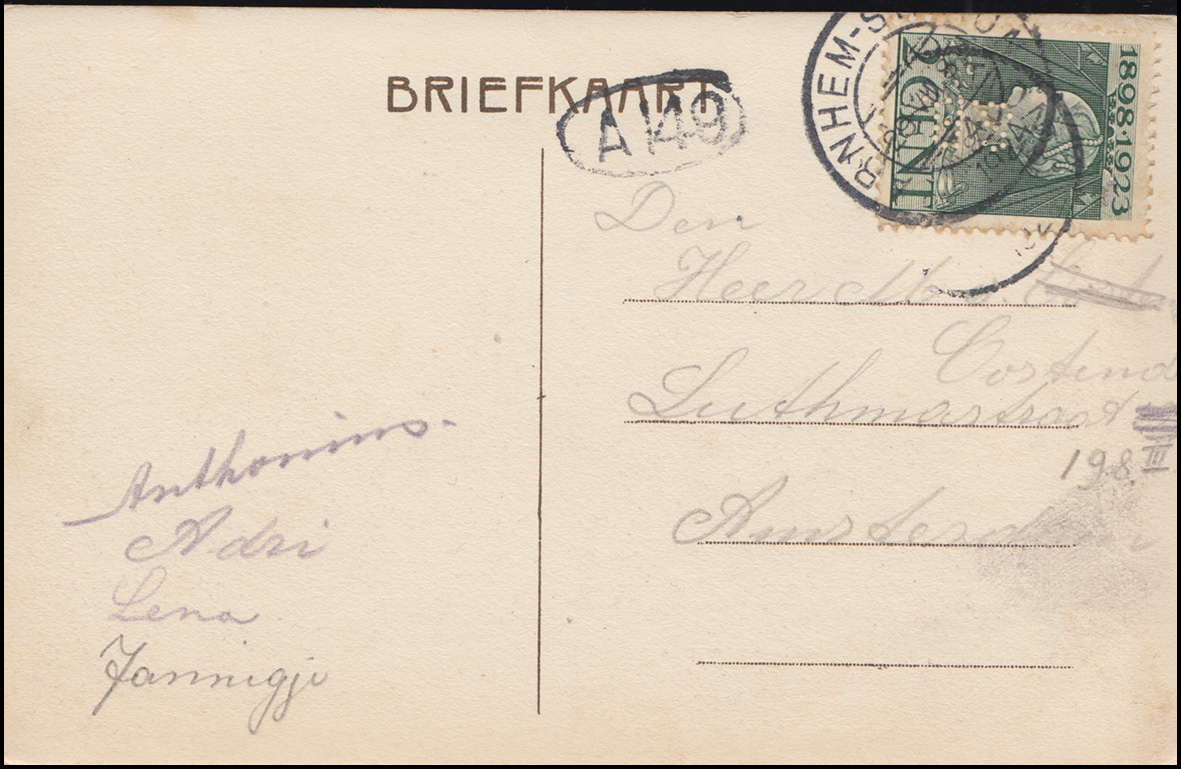 BRIEFKAART
A 149
RNHEM-ST
1898·1923
2 CENT
Den
Heer
Oostend
Luthmastraat
198 III
Amsterdam
Anthonius.
Adri
Lena
Jannigje